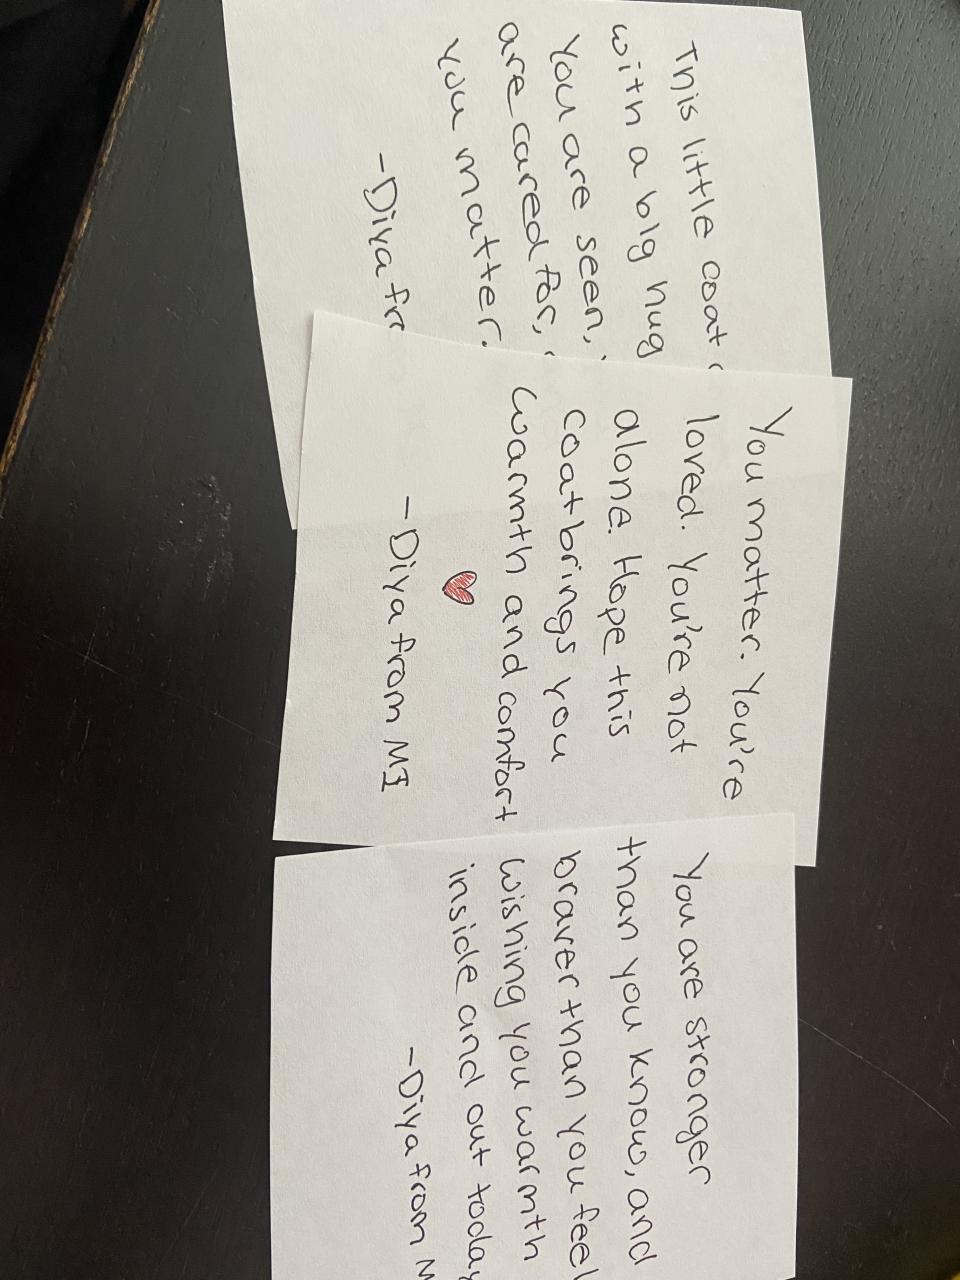 This little coat
with a big hug
You are seen,
are cared for,
you matter.
-Diya fr
You matter. You're
loved. You're not
alone. Hope this
coat brings you
warmth and comfort
-Diya from MI
You are stronger
than you know, and
braver than you feel
wishing you warmth
inside and out today
-Diya from M